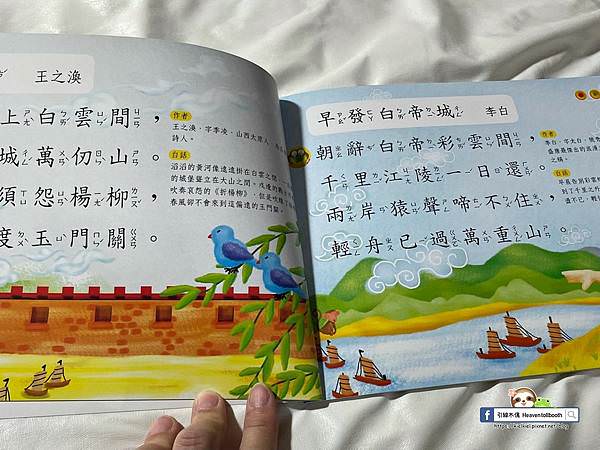 王之渙
上白雲間，
城萬仞山。
須怨楊柳，
度玉門關。
作者
王之渙，字季凌，山西太原人，
詩人。
白話
滔滔的黃河像遠遠掛在白雲之
的城堡豎立在大山之間。戍邊的
吹奏哀怨的《折楊柳》，但是
春風卻不會來到這偏遠的玉門關。
早發白帝城 李白
朝辭白帝彩雲間，
千里江陵一日還。
兩岸猿聲啼不住，
輕舟已過萬重山。
作者
李白，字太白，號
之稱。
白話
引線不偎 Heaventollbooth